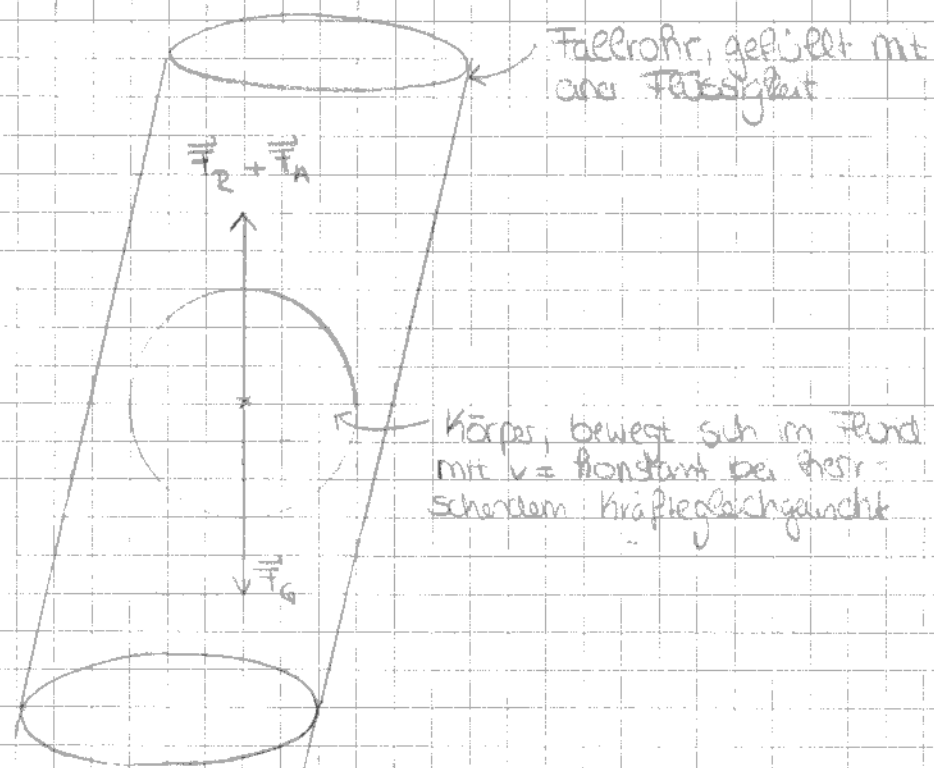 Fallrohr, gefüllt mit
einer Flüssigkeit
F_R + F_A
Körper, bewegt sich im Fluid
mit v = konstant bei herr-
schendem Kräftegleichgewicht
F_G